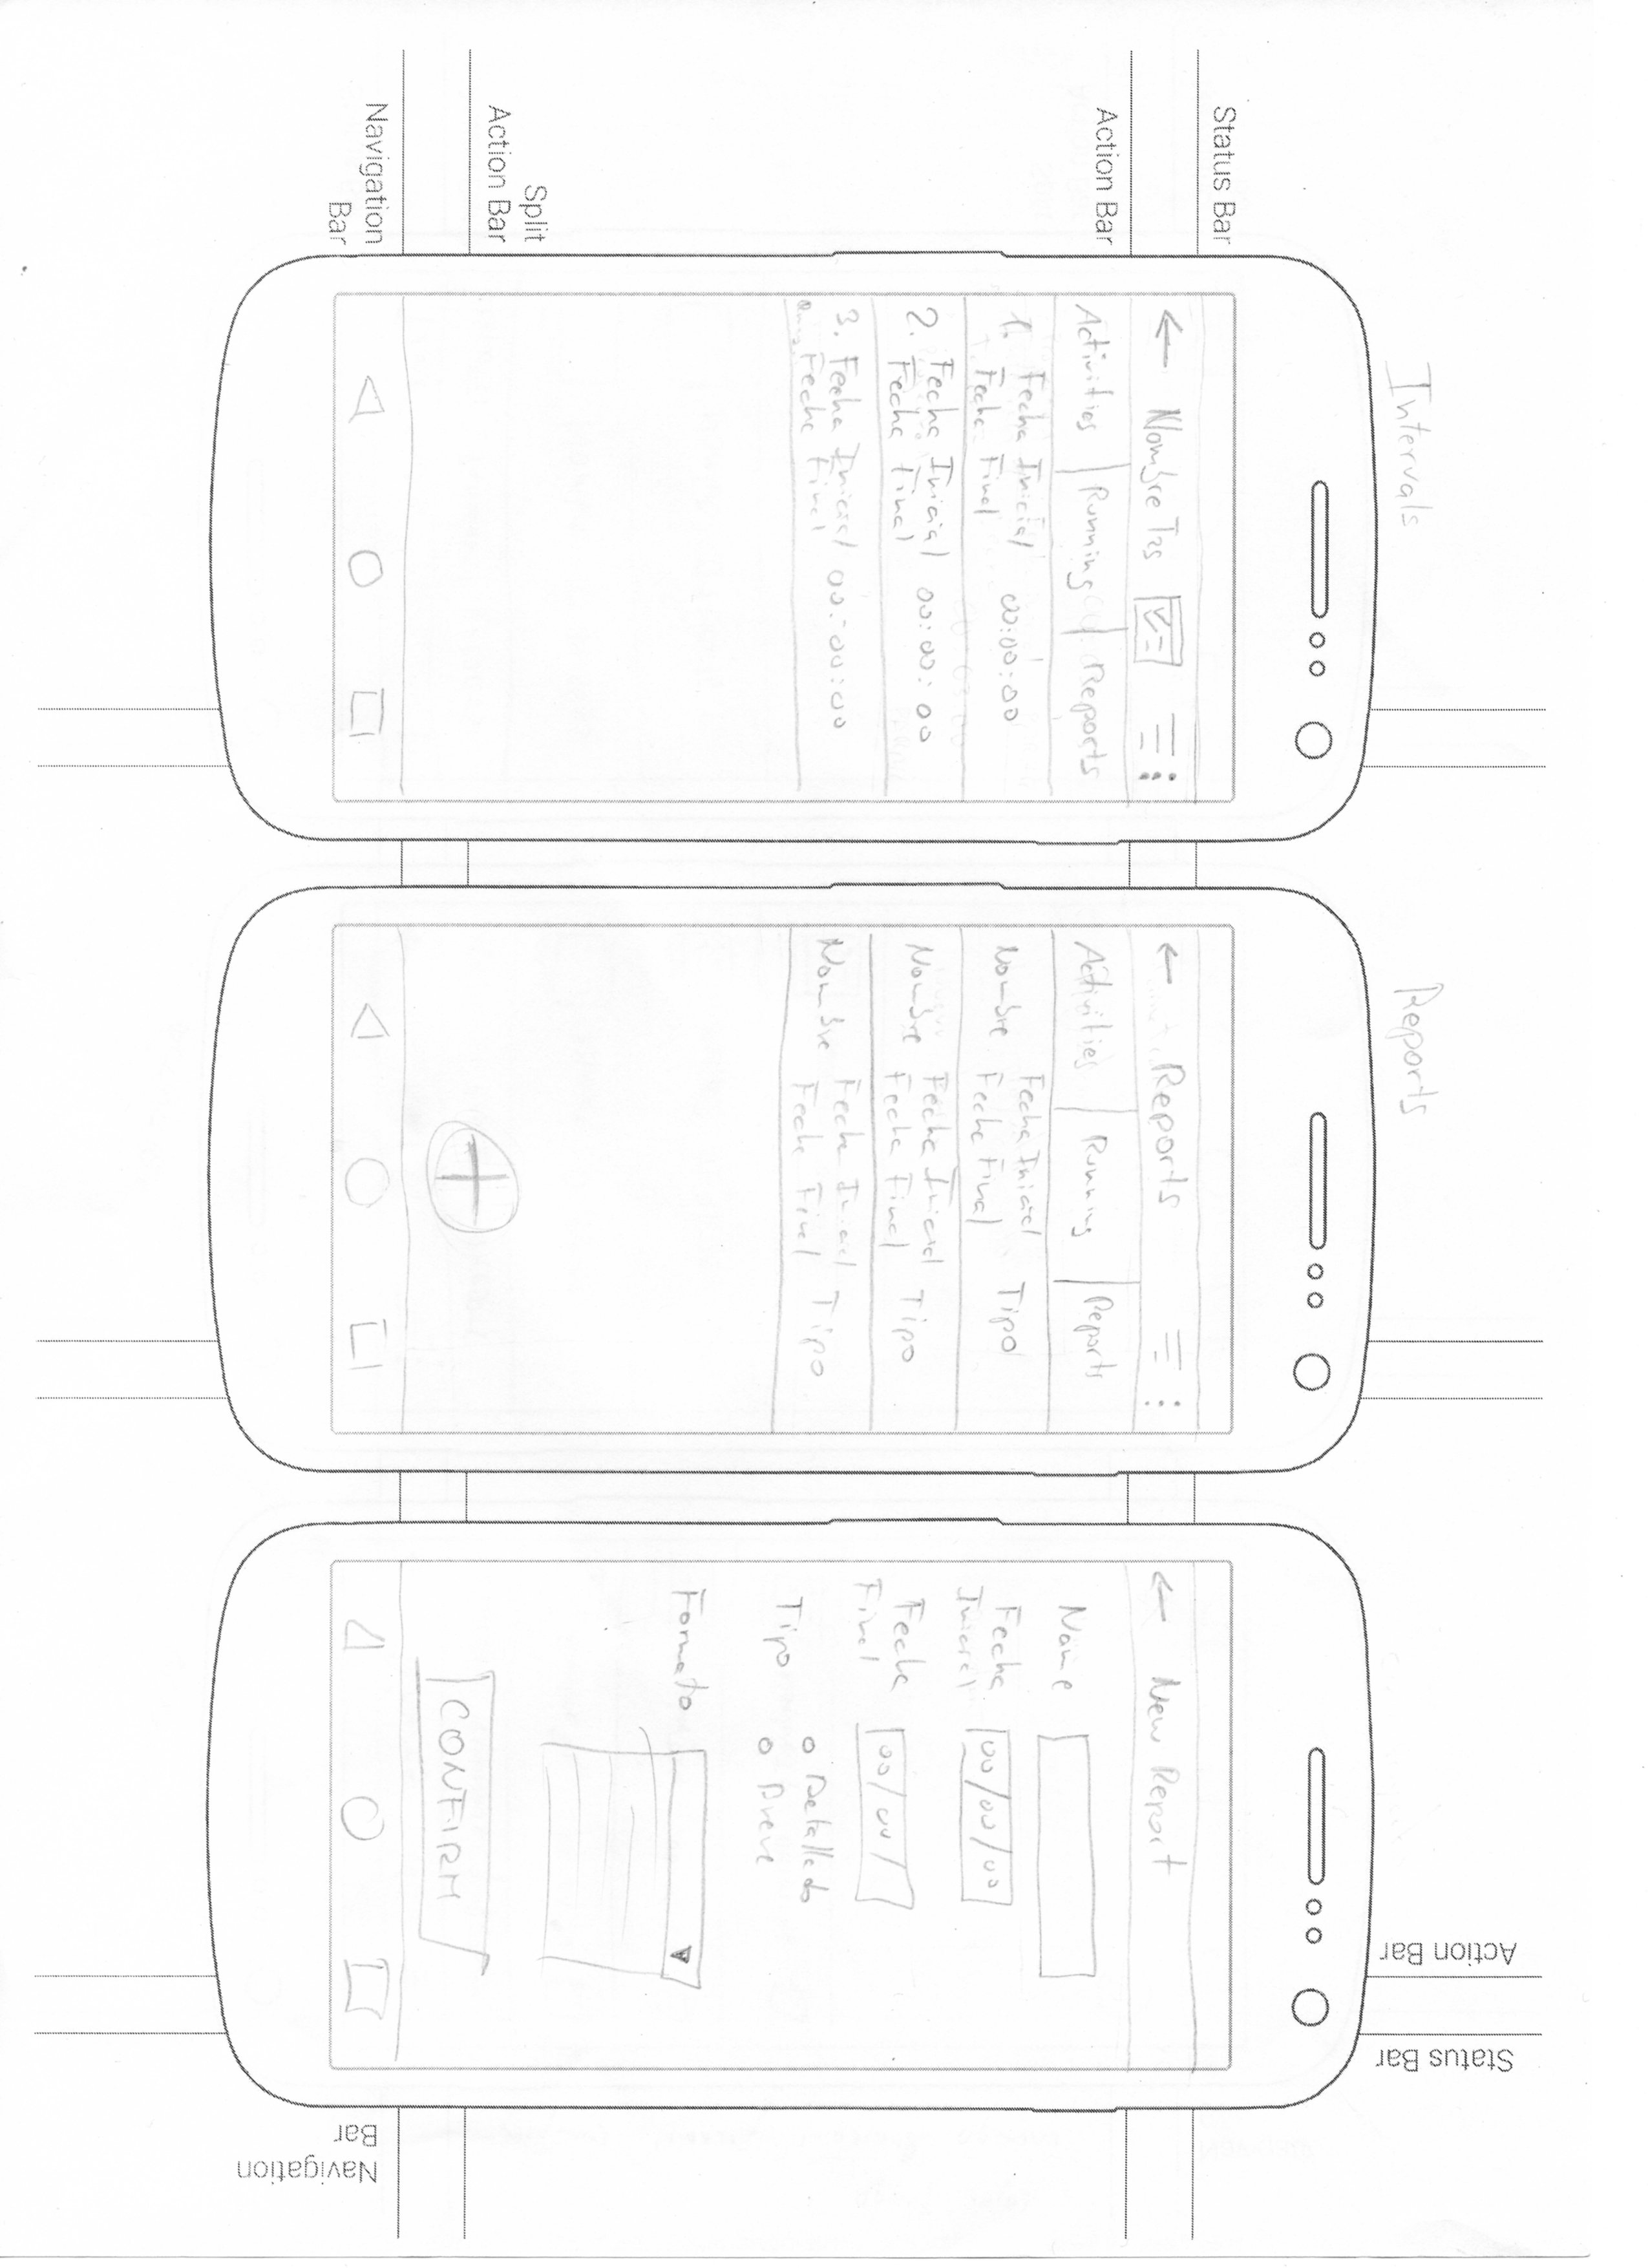 Intervals
Reports
Status Bar
Action Bar
Split
Action Bar
Navigation
Bar
← Nombre Tas
Activities Running Reports
1. Fecha Inicial 00:00:00
Fecha Final
2. Fecha Inicial 00:00:00
Fecha Final
3. Fecha Inicial 00:00:00
Fecha Final
← Reports
Activities Running Reports
Nombre Fecha Inicial Tipo
Fecha Final
Nombre Fecha Inicial Tipo
Fecha Final
Nombre Fecha Inicial Tipo
Fecha Final
← New Report
Name
Fecha 00/00/00
Inicial
Fecha 00/00/
Final
Tipo
o Detallado
o Breve
Formato
CONFIRM
Action Bar
Status Bar
Navigation
Bar